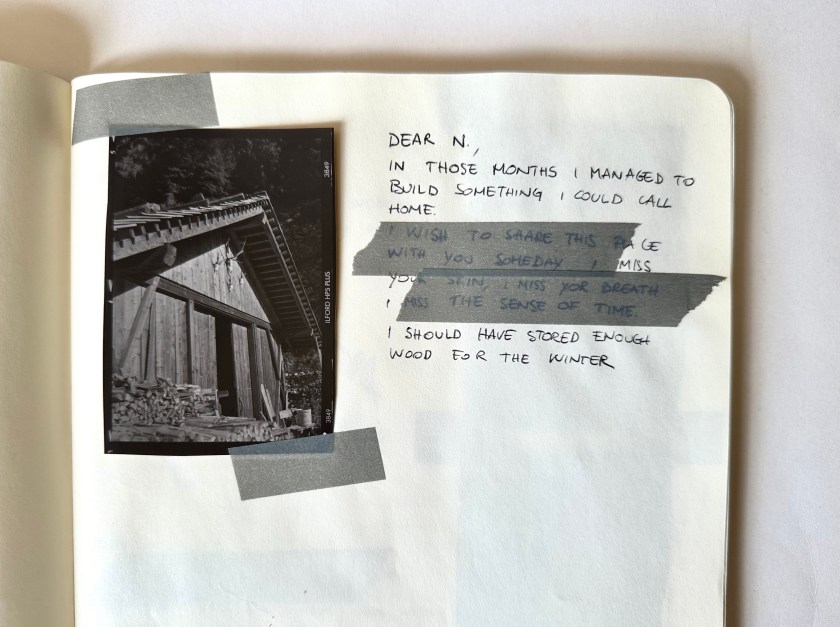 DEAR N.,
IN THOSE MONTHS I MANAGED TO
BUILD SOMETHING I COULD CALL
HOME.
I WISH TO SHARE THIS PLACE
WITH YOU SOMEDAY. I MISS
YOUR SKIN, I MISS YOR BREATH
I MISS THE SENSE OF TIME.
I SHOULD HAVE STORED ENOUGH
WOOD FOR THE WINTER
3849
ILFORD HP5 PLUS
3849